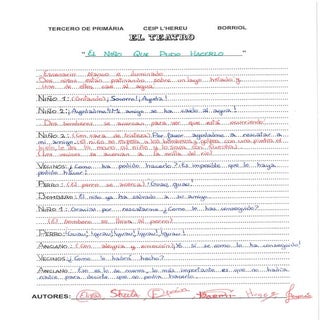 TERCERO DE PRIMARIA CEIP L'HEREU BORRIOL
EL TEATRO
"EL NIÑO QUE PUDO HACERLO"
Escenario blanco e iluminado.
Dos niños están patinando sobre un lago helado y
uno de ellos cae al agua.
NIÑO 1: (Gritando) ¡Socorro! ¡Ayuda!
NIÑO 2: ¡Ayudadme! ¡Mi amigo se ha caído al agua!
Dos bomberos se acercan para ver qué está ocurriendo.
NIÑO 2: (Con cara de tristeza) Por favor ayudadme a rescatar a
mi amigo. (El niño no espera a los bomberos y golpea con una piedra el
hielo, le da la mano al niño y lo saca con fuerza)
Los vecinos se acercan a la orilla del río
VECINOS: ¿Cómo ha podido hacerlo? ¡Es imposible que lo haya
podido hacer!
PERRO: (El perro se acerca) ¡Guau, guau!
BOMBERO: El niño ya ha salvado a su amigo.
NIÑO 1: Gracias por rescatarme ¿Cómo lo has conseguido?
(El bombero se lleva al perro)
PERRO: ¡Guau! ¡guau! ¡guau! ¡guau! ¡guau!
ANCIANO: (Con alegría y emoción) ¡Yo sí se como lo ha conseguido!
VECINOS: ¿Cómo lo habrá hecho?
ANCIANO: lo más importante es que no había
nadie para decirle que no podía hacerlo.
AUTORES: Sheila Noemi Hugo